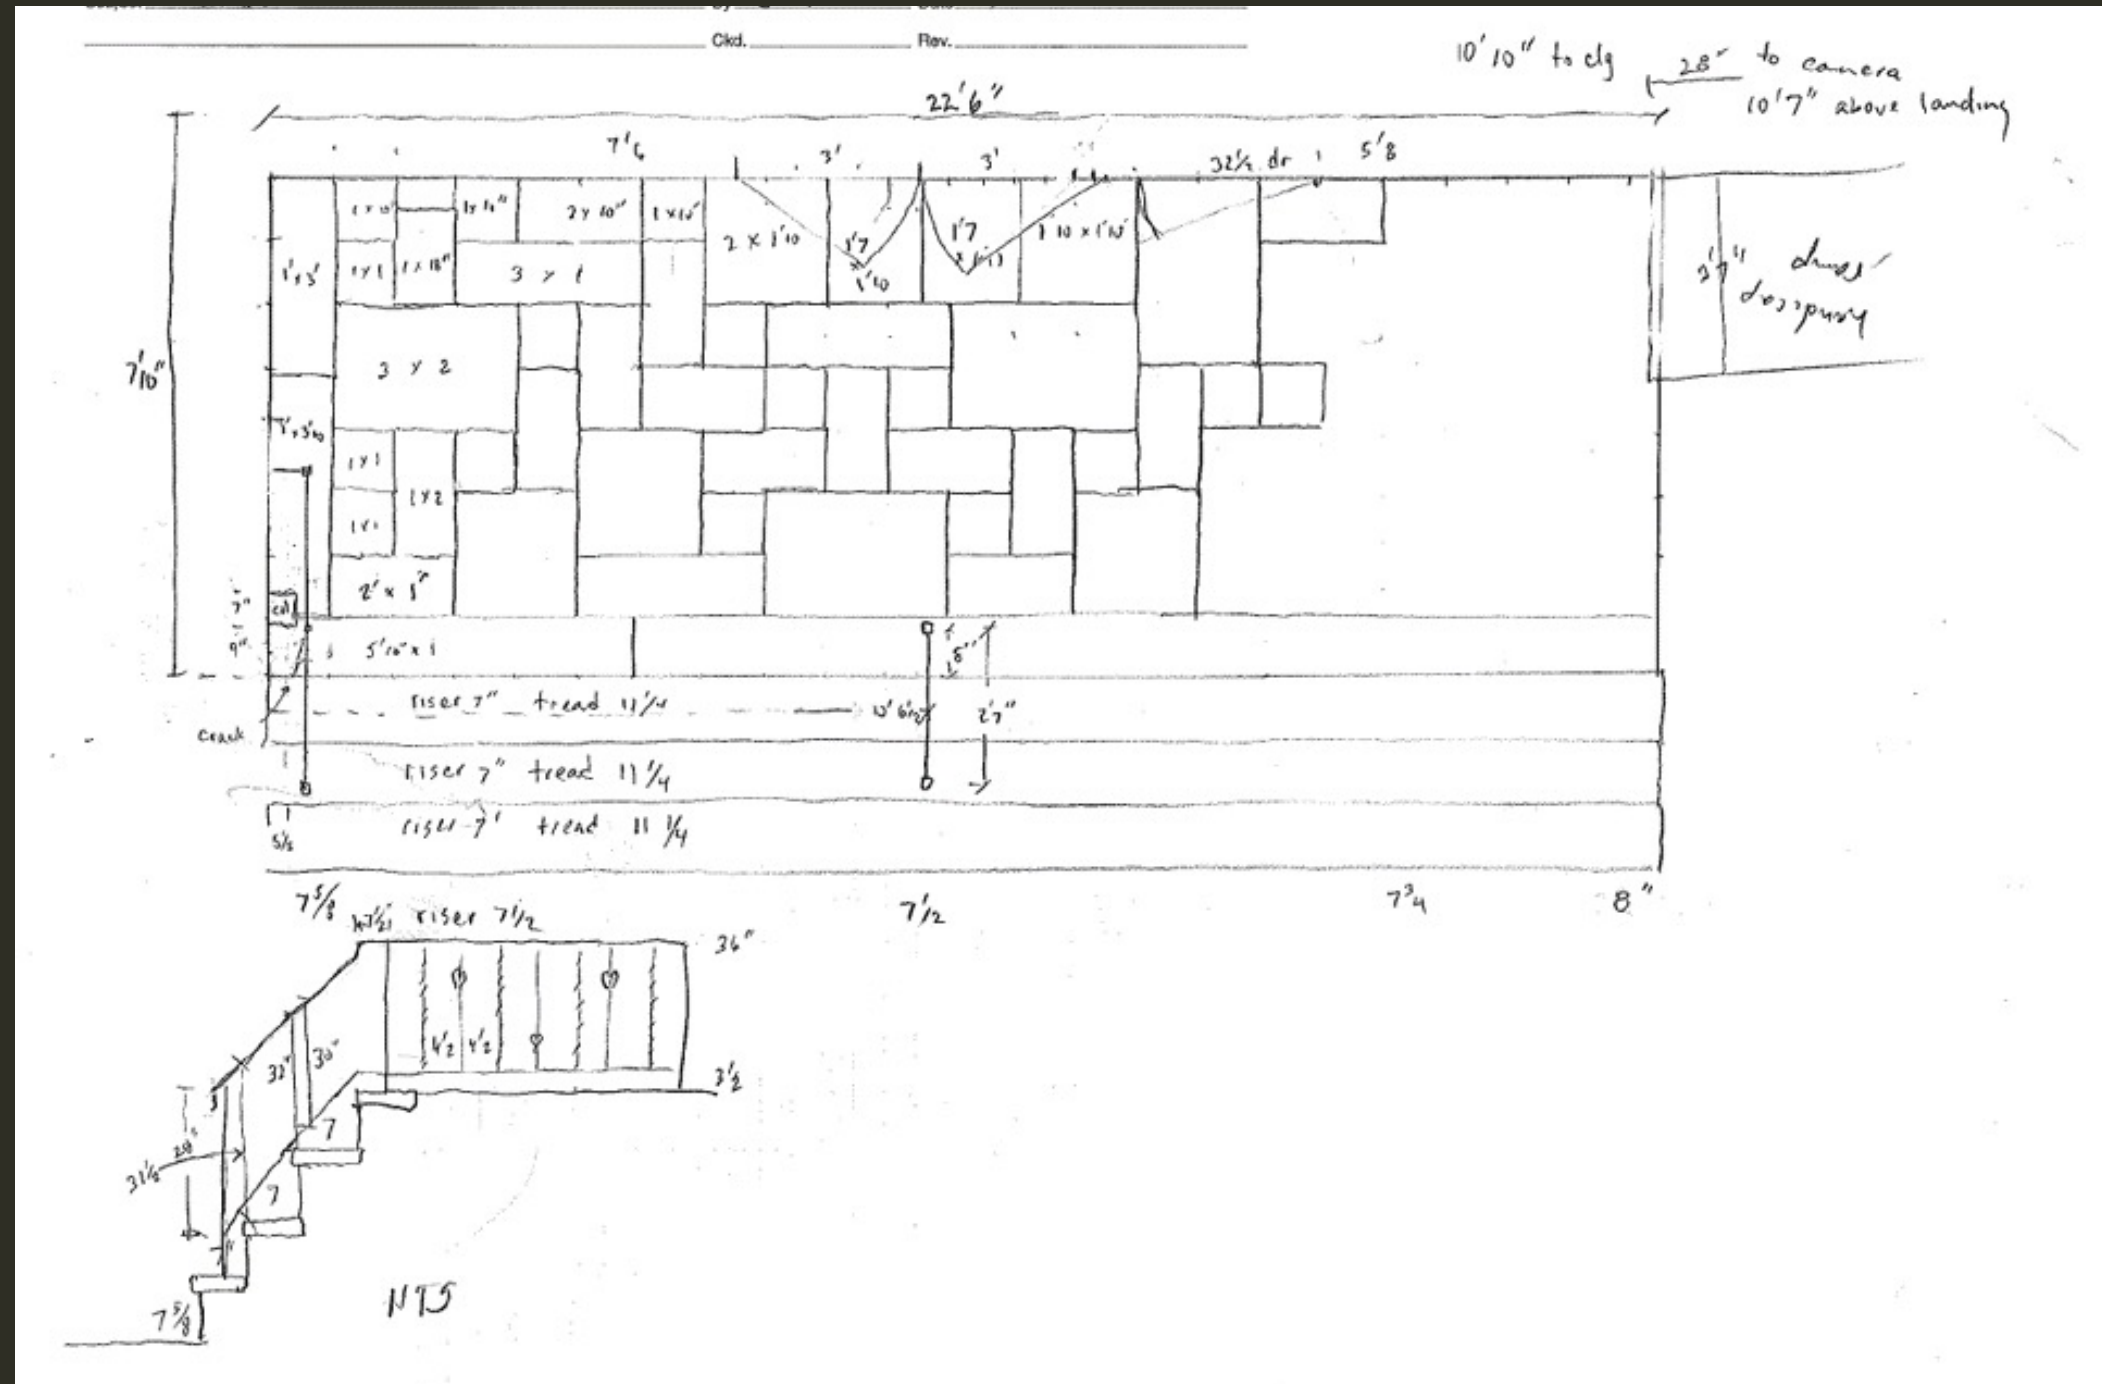 Ckd.
Rev.
10'10" to clg
28" to camera
10'7" above landing
22'6"
7'6
3'
3'
32 1/2 dr
5'8
7'10"
1'x3'
1 x 10"
1 x 10"
2 x 10"
1 x 10"
1 x 1
1 x 18"
3 x 1
2 x 1'10
1'7
x
1'10
1'7
1'10 x 1'10"
3'7"
handicap
ramp
3 x 2
1 x 1
1 x 2
1 x 1
2' x 1'
7"
9"
col
5'10" x 1
8"
riser 7" tread 11 1/4
10'6 1/2
2'7"
crack
riser 7" tread 11 1/4
riser 7" tread 11 1/4
5 1/2
7 5/8
riser 7 1/2
7 1/2
7 3/4
8"
36"
4 1/2
4 1/2
3 1/2
32"
30"
28"
31 1/2
7
7
7"
7 5/8
NTS